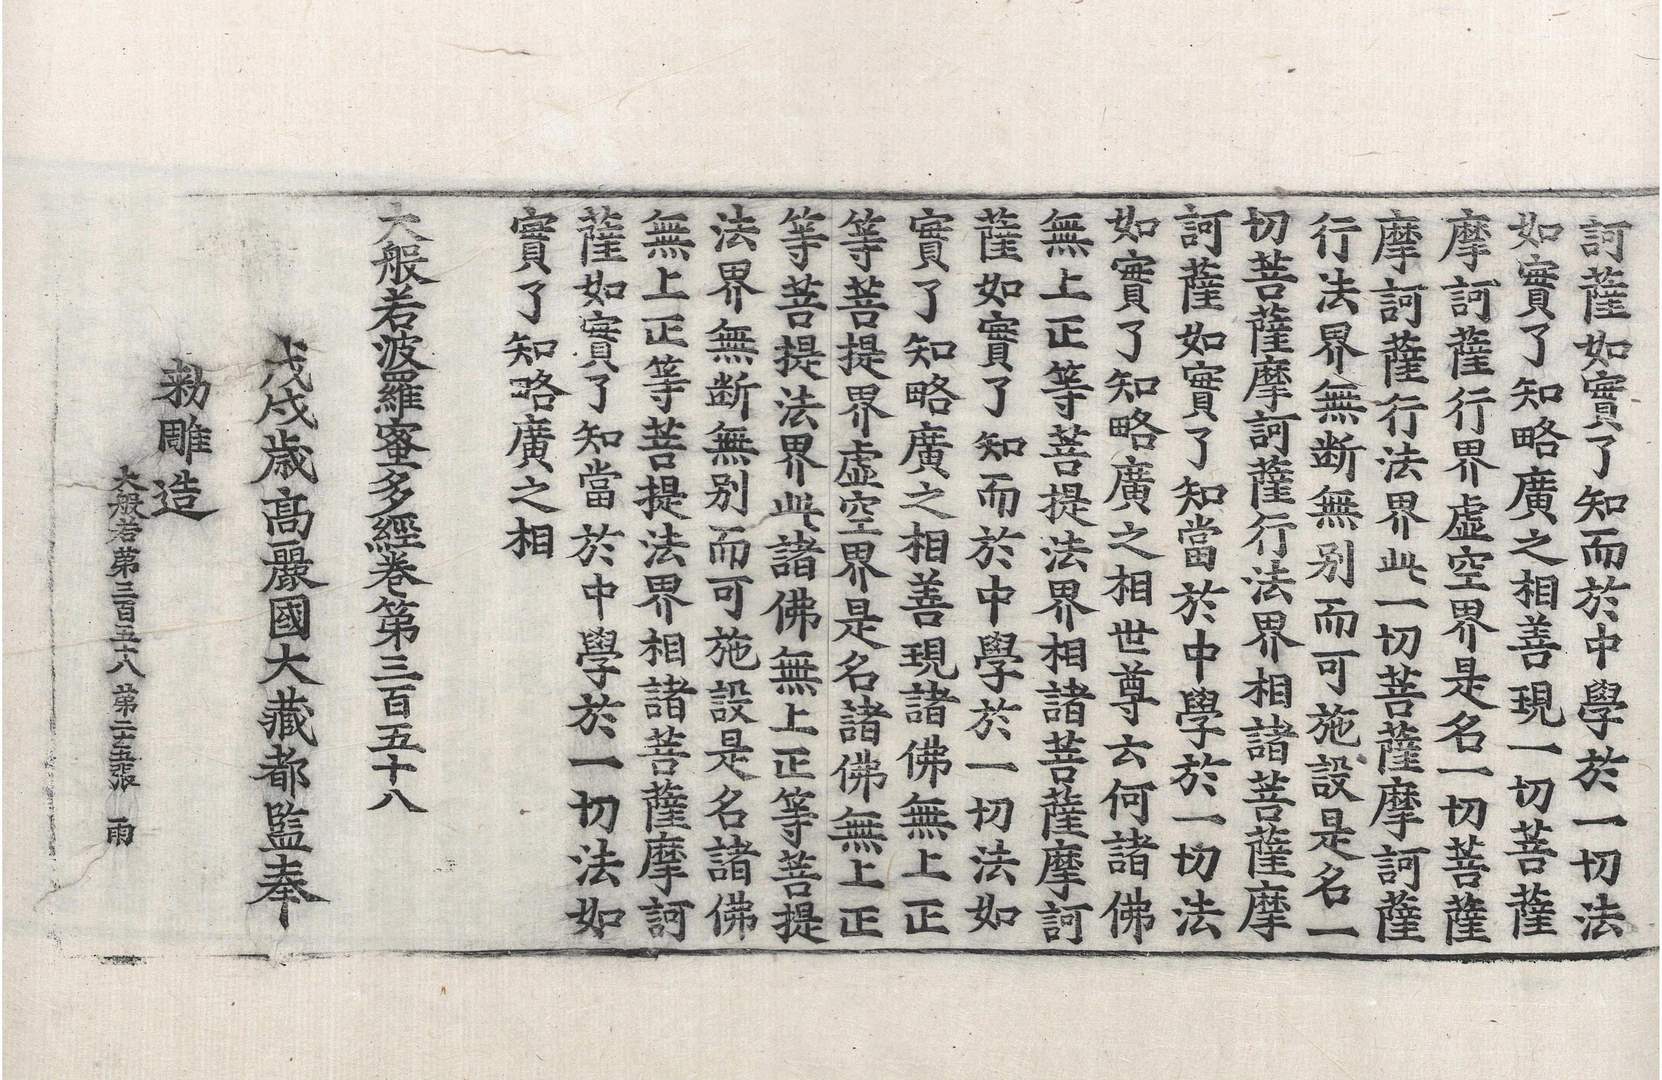 訶薩如實了知而於中學於一切法
如實了知略廣之相善現一切菩薩
摩訶薩行界虛空界是名一切菩薩
摩訶薩行法界此一切菩薩摩訶薩
行法界無断無別而可施設是名一
切菩薩摩訶薩行法界相諸菩薩摩
訶薩如實了知當於中學於一切法
如實了知略廣之相世尊云何諸佛
無上正等菩提法界相諸菩薩摩訶
薩如實了知而於中學於一切法如
實了知略廣之相善現諸佛無上正
等菩提界虛空界是名諸佛無上正
等菩提法界此諸佛無上正等菩提
法界無断無別而可施設是名諸佛
無上正等菩提法界相諸菩薩摩訶
薩如實了知當於中學於一切法如
實了知略廣之相
大般若波羅蜜多經卷第三百五十八
戊戌歲高麗國大藏都監奉
勑雕造
大般若第三百五十八 第二十五張 雨